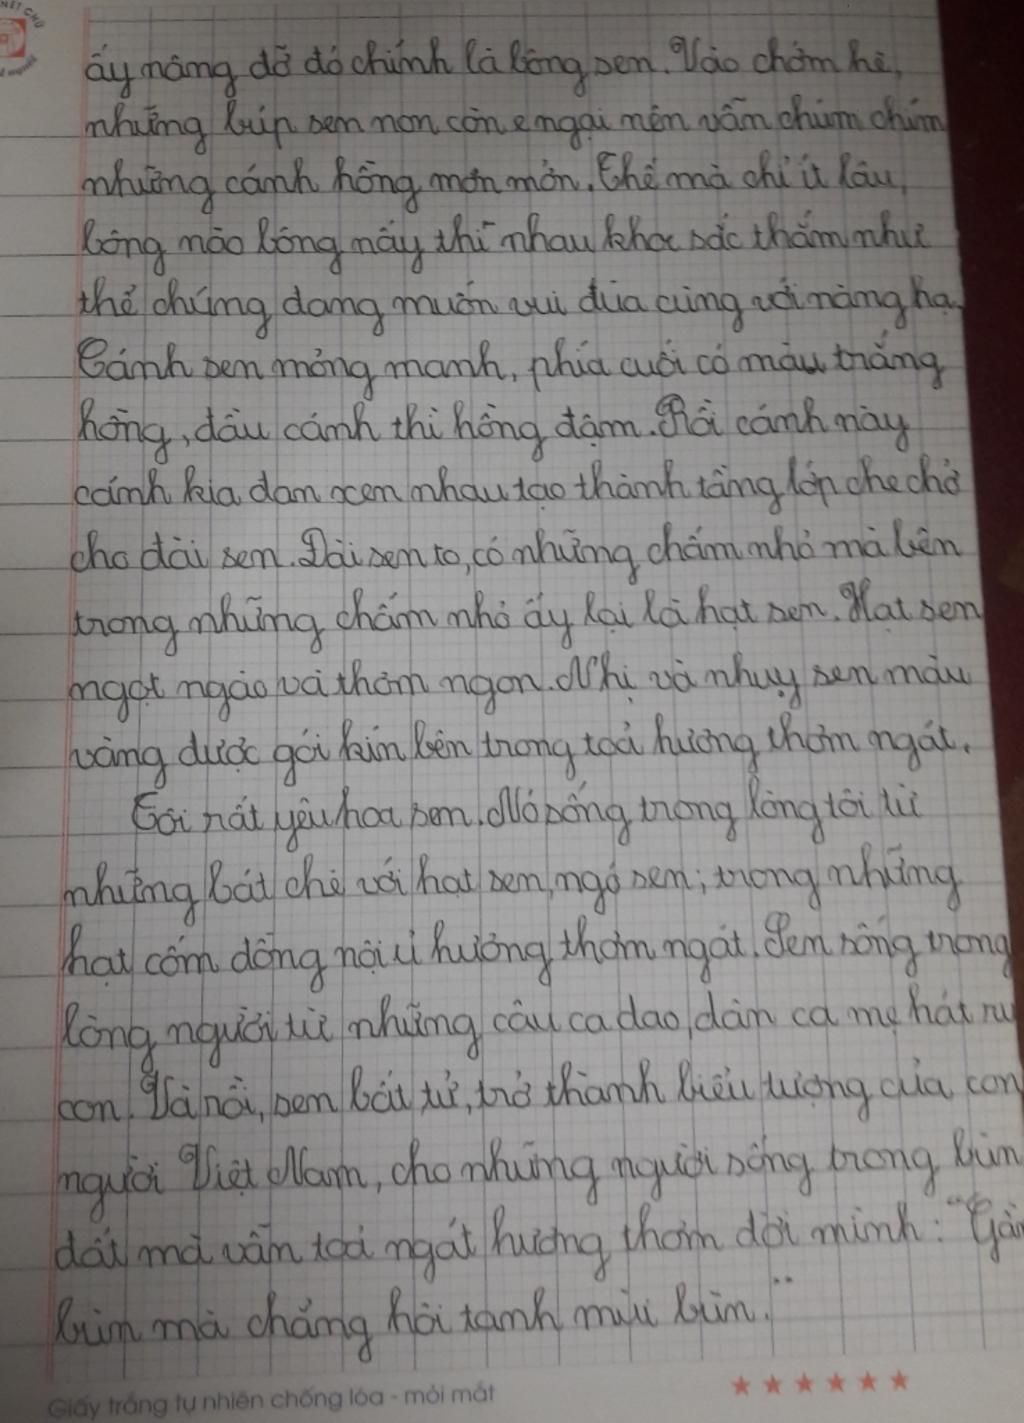 NÉT CHỮ
ấy nâng đỡ đó chính là bông sen. Vào chớm hè,
những búp sen non còn e ngại nên vẫn chúm chím
những cánh hồng mơn mởn. Thế mà chỉ ít lâu,
bông nào bông nấy thi nhau khoe sắc thắm như
thể chúng đang muốn vui đùa cùng với nàng hạ.
Cánh sen mỏng manh, phía cuối có màu trắng
hồng, đầu cánh thì hồng đậm. Rồi cánh này
cánh kia đan xen nhau tạo thành tầng lớp che chở
cho đài sen. Đài sen to, có những chấm nhỏ mà bên
trong những chấm nhỏ ấy lại là hạt sen. Hạt sen
ngọt ngào và thơm ngon. Nhị và nhuỵ sen màu
vàng được gói kín bên trong toả hương thơm ngát.
Tôi rất yêu hoa sen. Nó sống trong lòng tôi từ
những bát chè với hạt sen, ngó sen; trong những
hạt cốm đồng nội ủ hương thơm ngát. Sen sống trong
lòng người từ những câu ca dao, dân ca mẹ hát ru
con. Và rồi, sen bất tử, trở thành biểu tượng của con
người Việt Nam, cho những người sống trong bùn
đất mà vẫn toả ngát hương thơm đời mình: "Gần
bùn mà chẳng hôi tanh mùi bùn."
Giấy trắng tự nhiên chống lóa - mỏi mắt